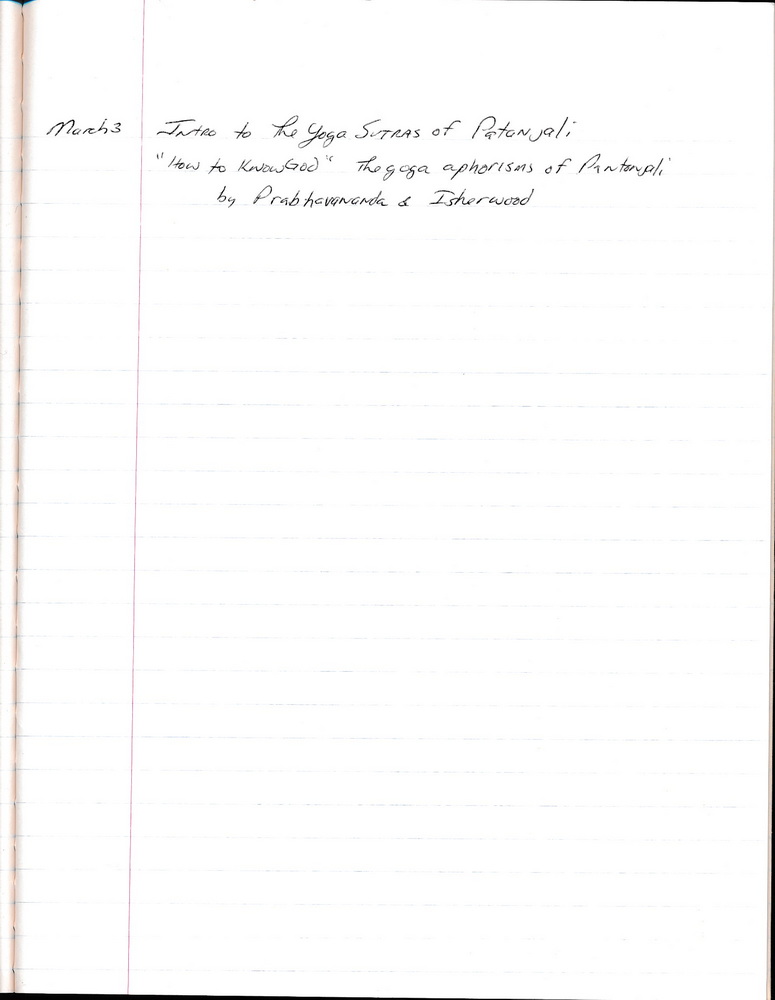 March 3 Intro to the Yoga Sutras of Patanjali
"How to Know God" The yoga aphorisms of Pantanjali
by Prabhavananda & Isherwood